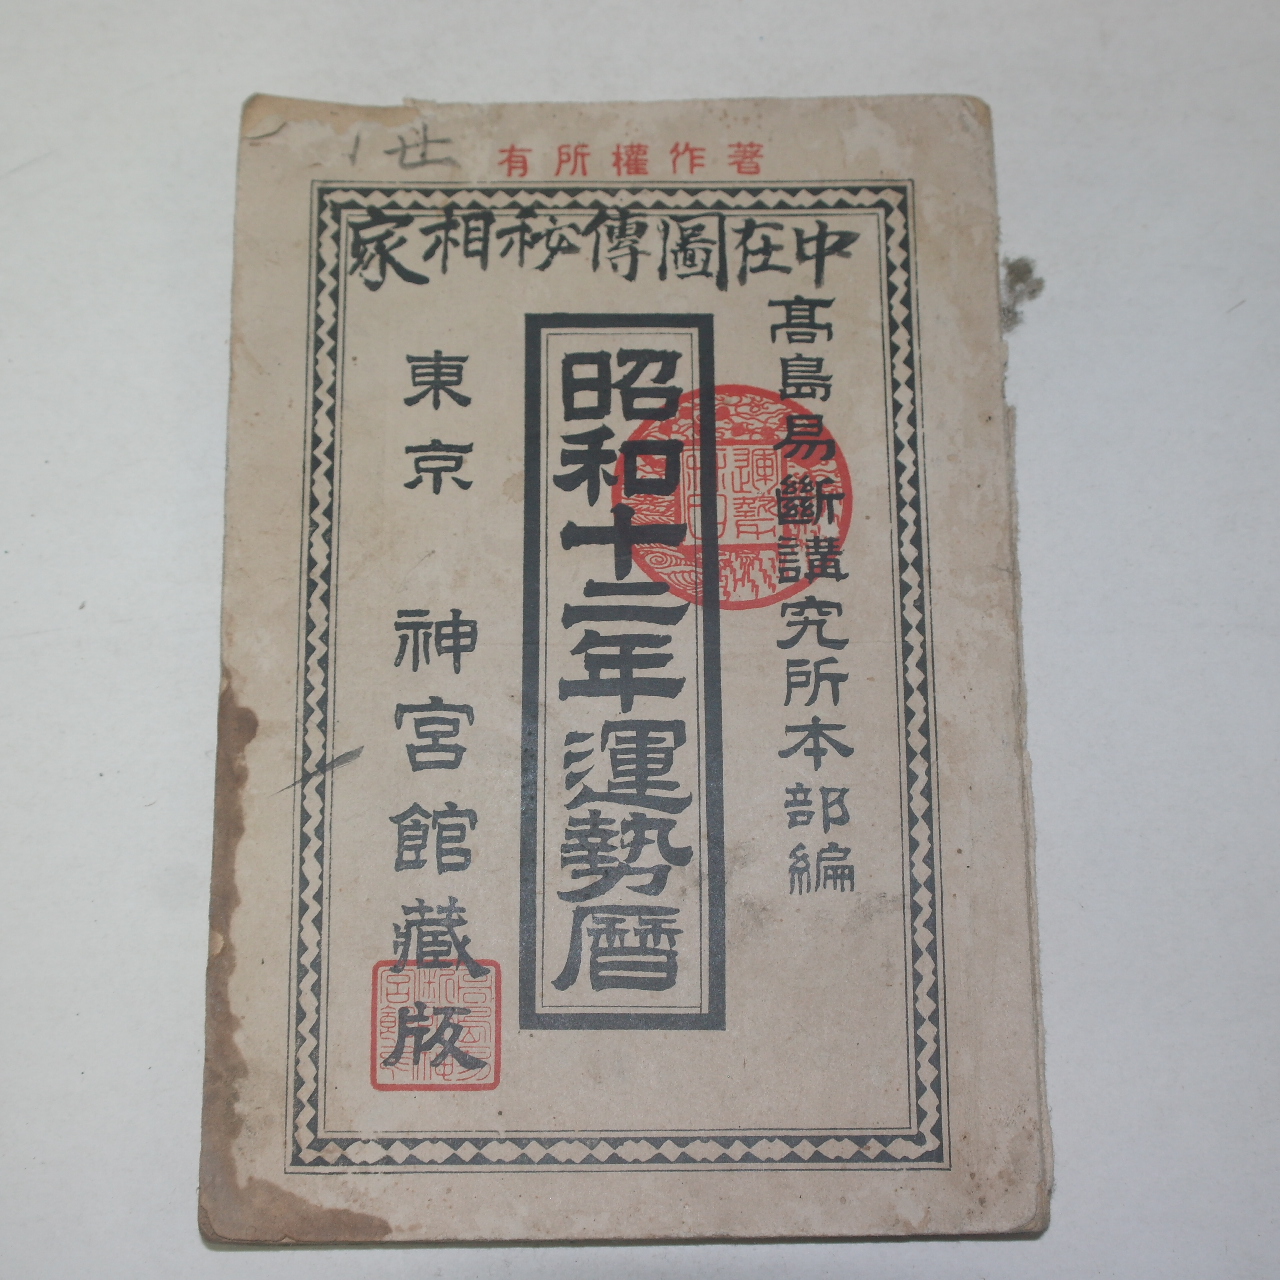 著作權所有
中在圖傳秘相家
髙島易斷講究所本部編
昭和十二年運勢暦
東京 神宮館藏版